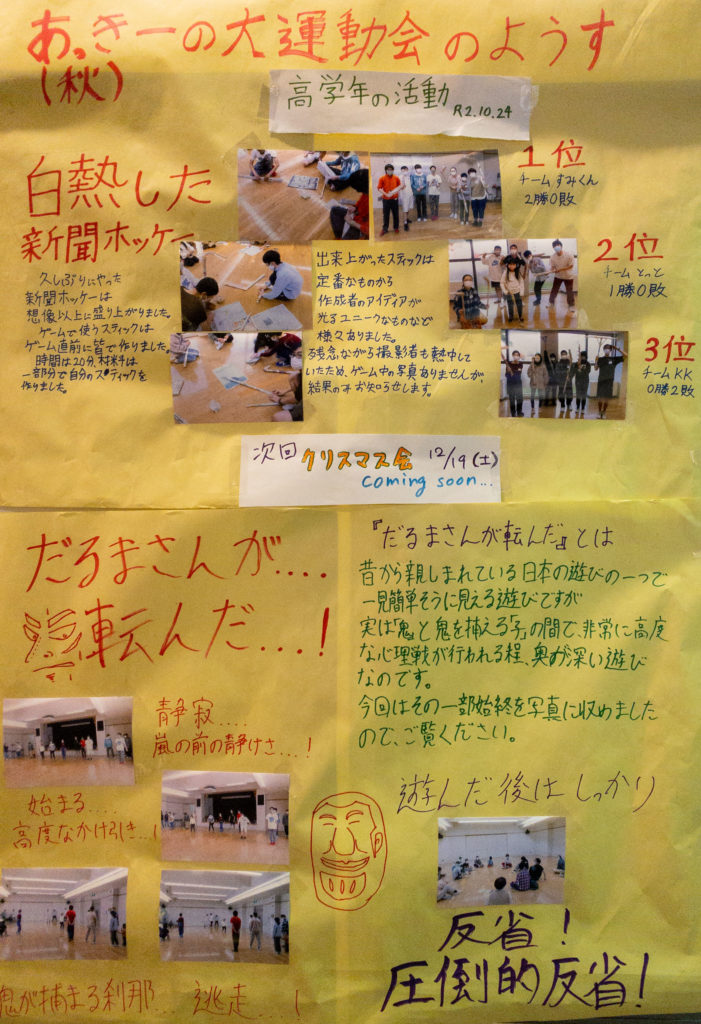 あっきーの大運動会のようす
(秋)
高学年の活動
R2.10.24
白熱した
新聞ホッケー
久しぶりにやった
新聞ホッケーは
想像以上に盛り上がりました。
ゲームで使うスティックは
ゲーム直前に皆で作りました。
時間は20分、材料は
一部分で自分のスティックを
作りました。
出来上がったスティックは
定番なものから
作成者のアイディアが
光るユニークなものなど
様々ありました。
残念ながら撮影者も熱中して
いたため、ゲーム中の写真ありませんが、
結果のみお知らせします。
1位
チームすみくん
2勝0敗
2位
チームとっと
1勝0敗
3位
チームKK
0勝2敗
次回 クリスマス会 12/19(土)
coming soon...
だるまさんが....
転んだ...!
静寂....
嵐の前の静けさ...!
始まる....
高度なかけ引き...!
鬼が捕まる刹那... 逃走...!
『だるまさんが転んだ』とは
昔から親しまれている日本の遊びの一つで
一見簡単そうに見える遊びですが
実は「鬼」と鬼を捕える「子」の間で、非常に高度
な心理戦が行われる程、奥が深い遊び
なのです。
今回はその一部始終を写真に収めました
ので、ご覧ください。
遊んだ後はしっかり
反省!
圧倒的反省!